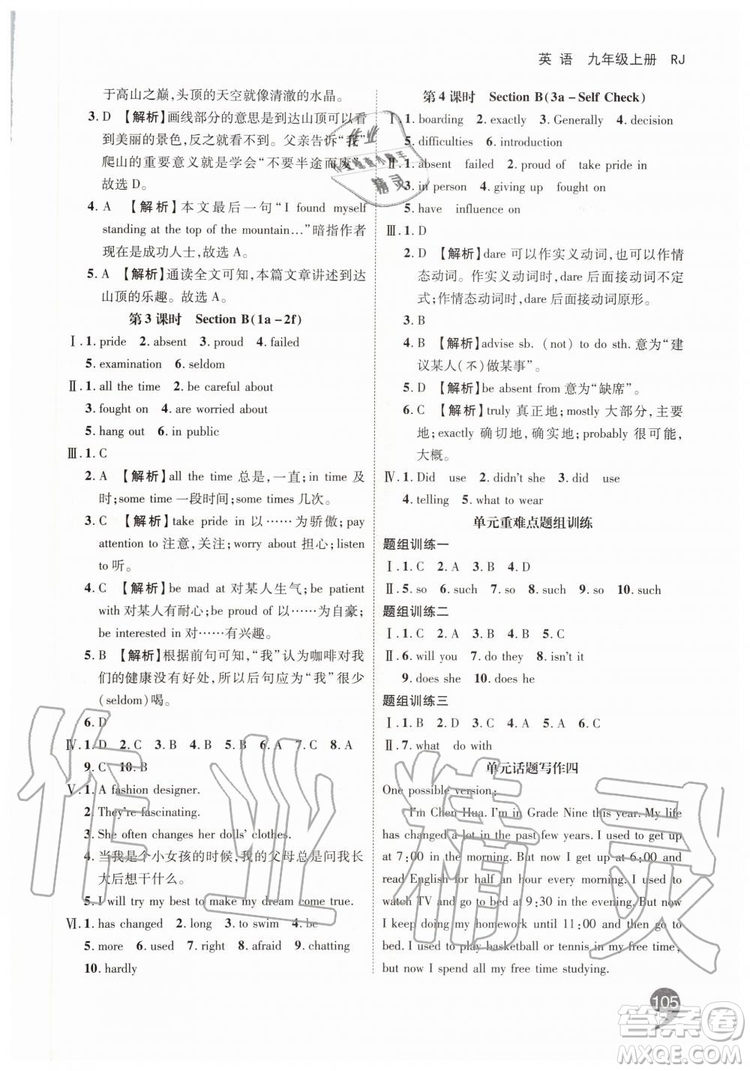 英 语　九年级上册　RJ
于高山之巅，头顶的天空就像清澈的水晶。
3. D 【解析】画线部分的意思是到达山顶可以看到美丽的景色，反之则不会。父亲告诉“我”
爬山的重要意义就是学会“不要半途而废”，
故选 D。
4. A 【解析】本文最后一句“I found myself
standing at the top of the mountain…”暗指作者
现在是成功人士，故选 A。
5. A 【解析】通读全文可知，本篇文章讲述到达
山顶的乐趣。故选 A。
第 3 课时　Section B(1a－2f)
Ⅰ. 1. pride 2. absent 3. proud 4. failed
5. examination 6. seldom
Ⅱ. 1. all the time 2. be careful about
3. fought on 4. are worried about
5. hang out 6. in public
Ⅲ. 1. C
2. A 【解析】all the time 总是，一直；in time 及
时；some time 一段时间；some times 几次。
3. C 【解析】take pride in 以……为骄傲；pay
attention to 注意，关注；worry about 担心；listen
to 听。
4. C 【解析】be mad at 对某人生气；be patient
with 对某人有耐心；be proud of 以……为自豪；
be interested in 对……有兴趣。
5. B 【解析】根据前句可知，“我”认为咖啡对我
们的健康没有好处。所以“我”很少
(seldom)喝。
6. D
Ⅳ. 1. D 2. C 3. A 4. B 5. A 6. C 7. B 8. B
9. C 10. B
Ⅴ. 1. A fashion designer.
2. They're fascinating.
3. She often changes her dolls' clothes.
4. 当我是个小女孩的时候，我的父母总是问我长
大后想干什么。
5. I will try my best to make my dream come true.
Ⅵ. 1. has changed 2. to 3. a 4. smart 5. be
6. But 7. nights 8. right 9. afraid 9. chatting
10. hardly
第 4 课时　Section B(3a－Self Check)
Ⅰ. 1. boarding 2. exactly 3. Generally 4. decision
5. difficulties 6. introduction
Ⅱ. 1. absent from 2. proud of take pride in
3. in person 4. giving up given up
5. have influence on
Ⅲ. 1. D
2. D 【解析】dare 可以作实义动词，也可以作情
态动词。作实义动词时，后面接动词不定
式；作情态动词时，后面接动词原形。
3. B
4. B 【解析】advise sb. (not) to do sth. 意为“建
议某人(不)做某事”。
5. D 【解析】be absent from 意为“缺席”。
6. C 【解析】truly 真正地；mostly 大部分，主要
地；exactly 确切地，确实地；probably 很可能，
大概。
Ⅳ. 1. Did use 2. didn't use 3. didn't she
4. telling 5. what to wear
单元重难点题组训练
题组训练一
Ⅰ. 1. C 2. A 3. C 4. A 5. D
Ⅱ. 5. so 6. such 7. so 8. so 9. such 10. such
题组训练二
Ⅰ. 1. D 2. C 3. A 4. C 5. A
Ⅱ. 6. will you 7. do they 8. didn't he
9. does she 10. does he
题组训练三
Ⅰ. 1. B 2. C 3. A 4. B 5. D 6. D
Ⅱ. 7. what do 8. with
单元话题写作四
One possible version:
I'm Chen Hua. I'm in Grade Nine this year. My life
has changed a lot in the past few years. I used to get up
at 7:00 in the morning. But now I get up at 6:00 and
read English for half an hour in the morning. I used to
watch TV and go to bed at 9:30 in the evening. But now
I keep doing my homework until 11:00 and then go to
bed. I used to play basketball or tennis in my free time,
but now I spend all my free time studying.
105
作业精灵
答案圈